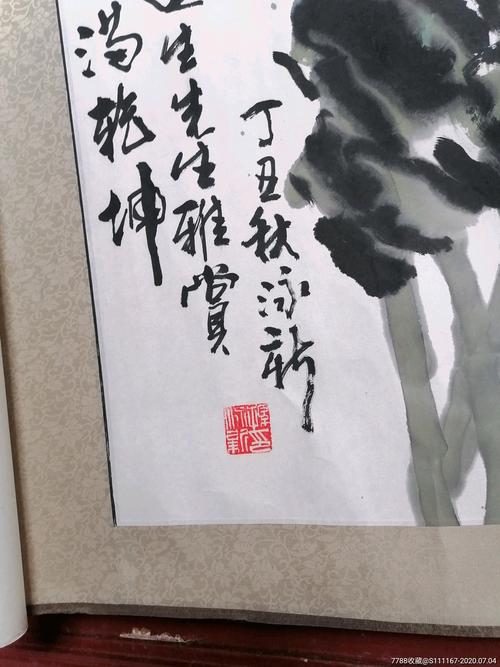 满乾坤
生先生雅赏
丁丑秋泳新
7788收藏@S111167-2020.07.04